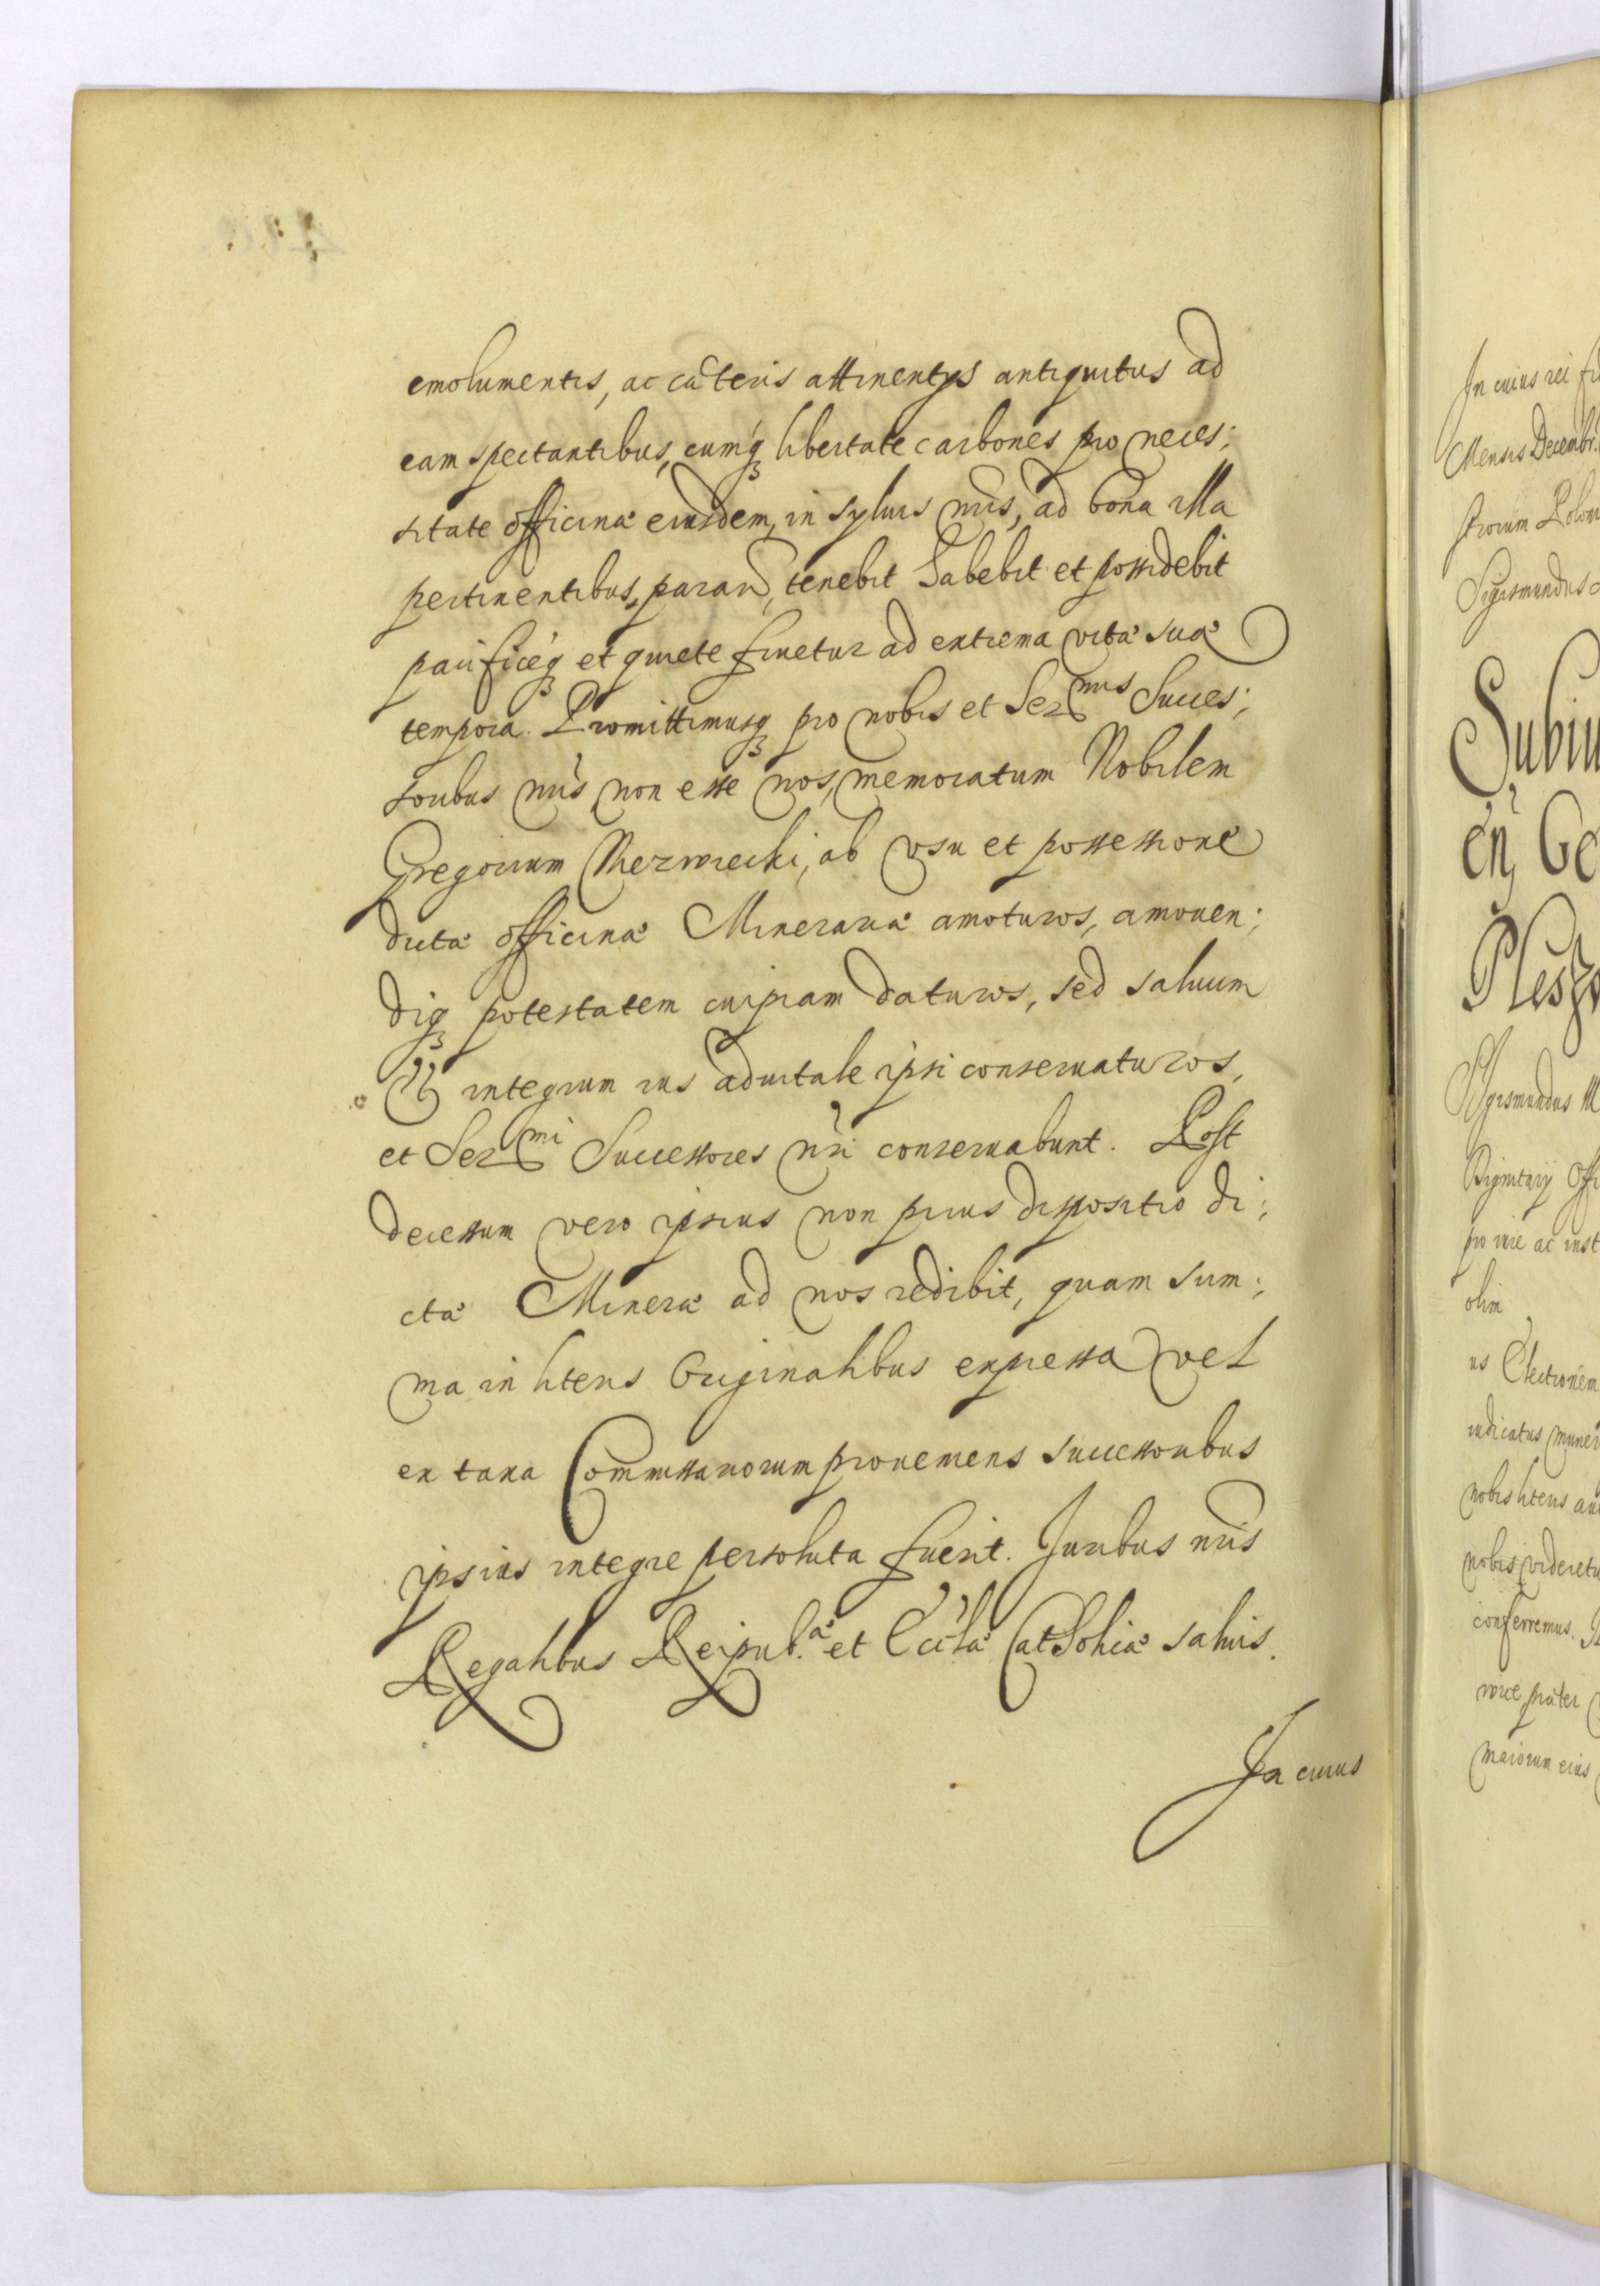 emolumentis, ac cæteris attinentys antiquitus ad
eam spectantibus, cumq́ libertate carbones pro neces;
sitate officinæ eiusdem, in syluis nris, ad bona illa
pertinentibus, parand, tenebit habebit et possidebit
pacificéq et quiete fruetur ad extrema vitæ suæ
tempora. Promittimusq pro nobis et Ser nis Succes;
soribus nris non esse nos, memoratum Nobilem
Gregorium, ab vsu et possessione
dictæ officinæ Minerariæ amoturos, amouen;
diq potestatem cuipiam daturos, sed saluum
et integrum ius aduitale ipsi conseruaturos,
et Ser mi Successores nri conseruabunt. Post
decessum vero ipsius non prius dispositio di;
ctæ Mineræ ad nos redibit, quam sum;
ma in literis Originalibus expressa vel
ex taxa Commissariorum proueniens successoribus
ipsius integre persoluta fuerit. Juribus nris
Regalibus Reipub.æ et Eccl'iæ Catholicæ saluis.
In cuius
In cuius rei
Mensis Decembr.
Sigismundus
Sigismundus M
pro iure ac iust
olim
us Electionem
iudicatus muner
nobis literis
nobis videretu
conferremus.
præter
maiorum eius